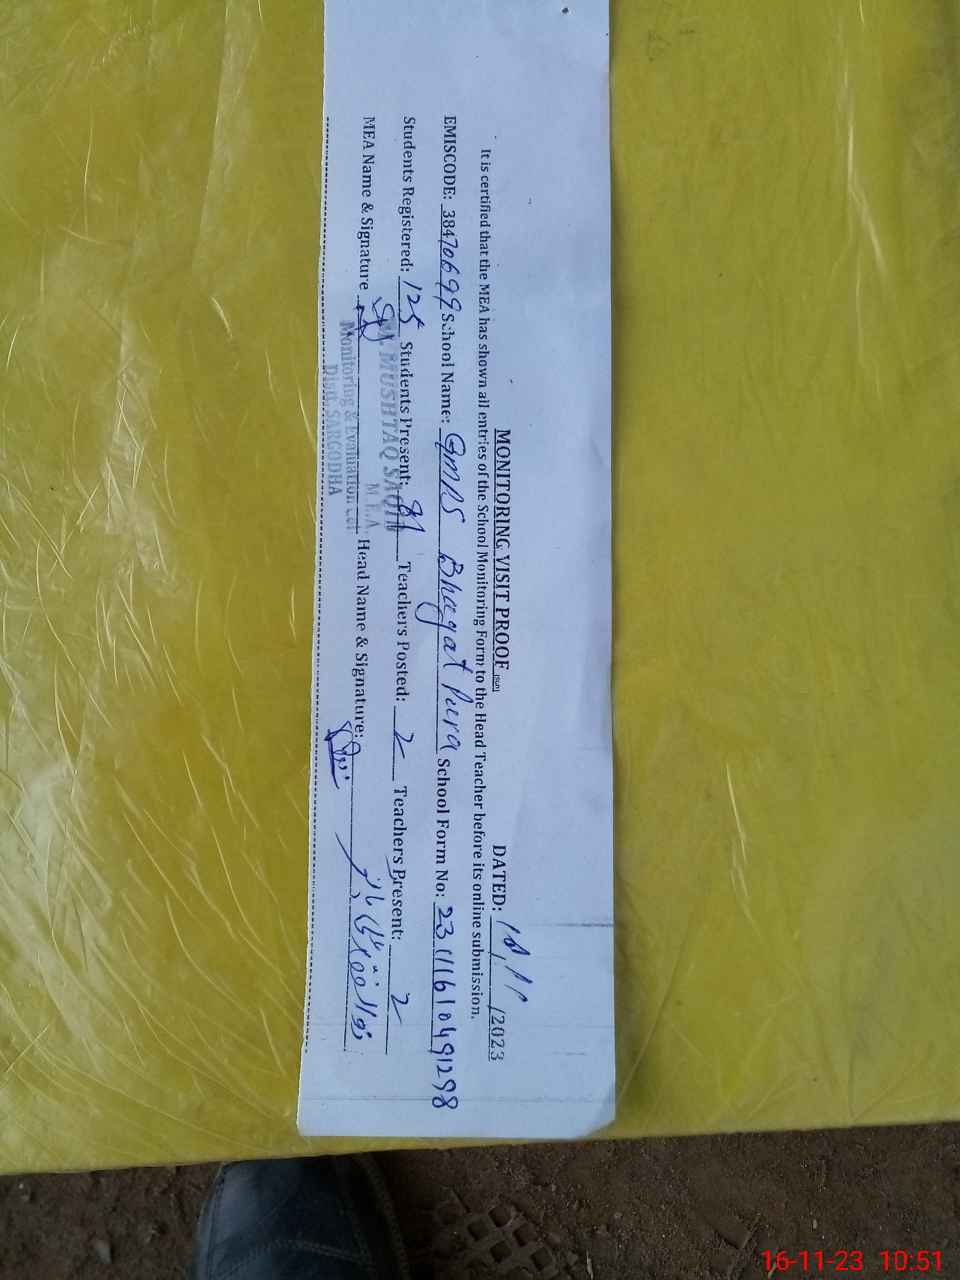 MONITORING VISIT PROOF DATED: /2023
It is certified that the MEA has shown all entries of the School Monitoring Form to the Head Teacher before its online submission.
EMISCODE: 38470699 School Name: GMPS Bhagat Pura School Form No:
Students Registered: 125 Students Present: 81 Teachers Posted: 2 Teachers Present: 2
MEA Name & Signature Head Name & Signature:
MUSHTAQ SAQIB
M.E.A.
Monitoring & Evaluation
Distt. SARGODHA
16-11-23 10:51